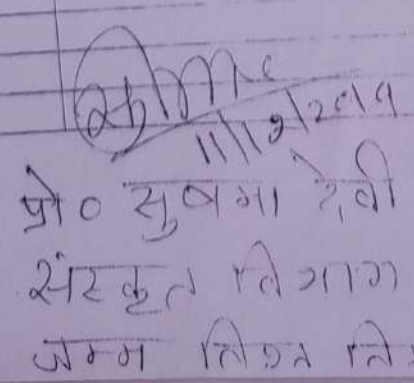 11/12/2019
प्रो० सुषमा देवी
संस्कृत विभाग
जम्मू विश्व वि